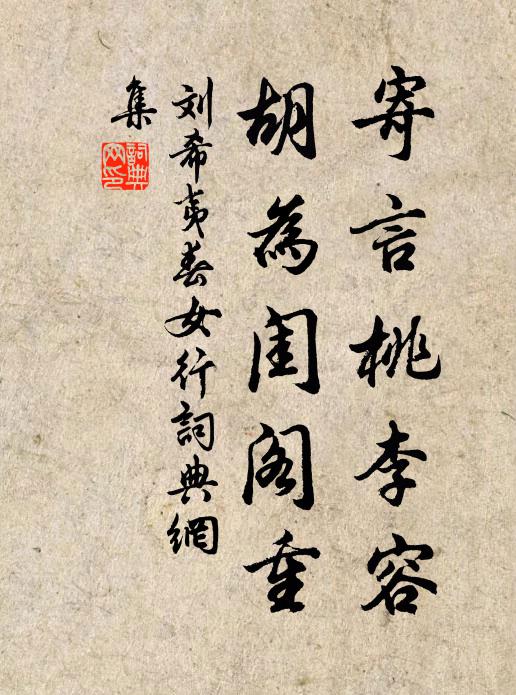 寄言桃李容
胡為閨閣重
刘希夷春女行詞典網
集
詞典
网印